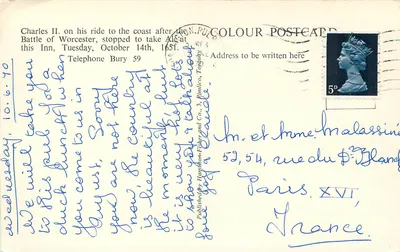 Charles II. on his ride to the coast after the
Battle of Worcester, stopped to take Ale at
this Inn, Tuesday, October 14th, 1651.
Telephone Bury 59
COLOUR POSTCARD
Address to be written here
5P
Wednesday, 10.6.70
We will take you
to this pub for
duck luncheon when
you come to us in
August, Sorry
you are not here
now, the country
is beautiful at
the moment, but
it is very hot, lots
to show you & talk about
M. et Mme. Malassine
52, 54, rue du Dr Bland
Paris XVI,
France.